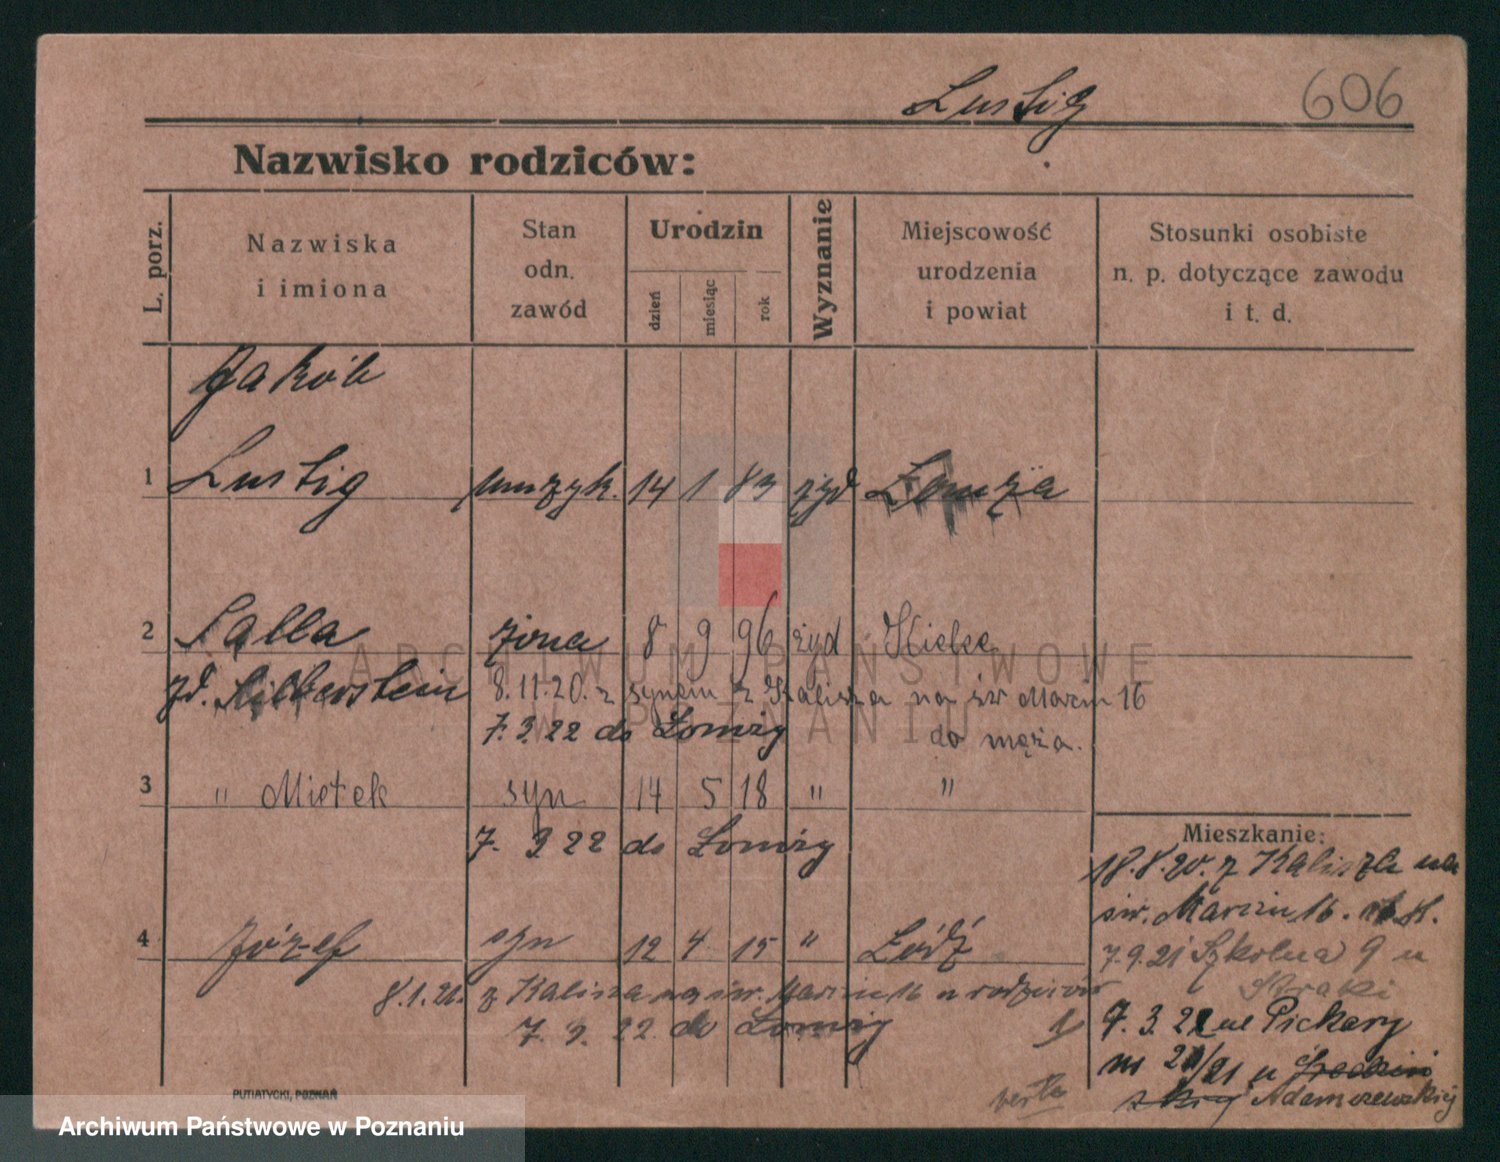 Lustig 606
Nazwisko rodziców:
L. porz.
Nazwiska
i imiona
Stan
odn.
zawód
Urodzin
dzień
miesiąc
rok
Wyznanie
Miejscowość
urodzenia
i powiat
Stosunki osobiste
n. p. dotyczące zawodu
i t. d.
Jakób
1 Lustig muzyk. 14 1 83 żyd Łomża
2 Salla żona 8 9 96 żyd Kielce
zd. Silberstein 8.11.20. z synem z Kalisza na św Marcin 16
7.3.22 do Łomży do męża.
3 " Mietek syn 14 5 18 " "
7. 3 22 do Łomży
Mieszkanie:
18.8.20. z Kalisza na
św. Marcin 16.
4 Józef syn 12 4 15 " Łódź
7.9.21 Szkolna 9 u
8.1.21. z Kalisza na św. Marcin 16 u rodziców
7. 3. 22 do Łomży
7.3.22 Piekary
u
Adamczewskiej
verte
PUTIATYCKI, POZNAŃ
ARCHIWUM PAŃSTWOWE
W POZNANIU
Archiwum Państwowe w Poznaniu